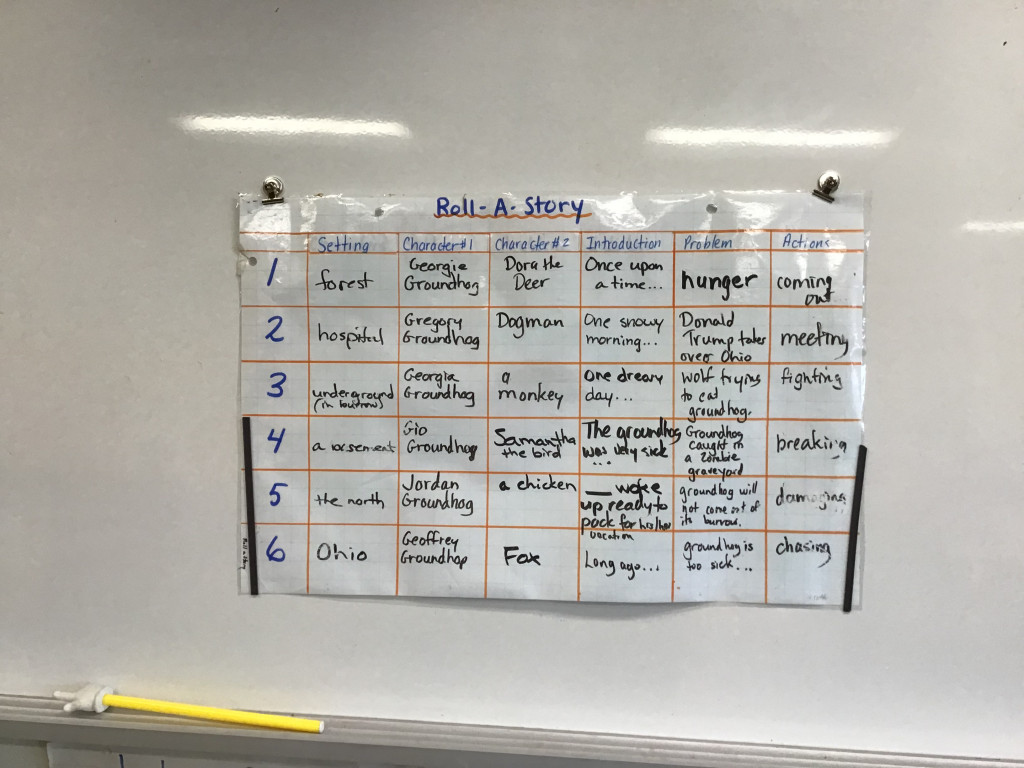 Roll-A-Story
Setting Character#1 Character#2 Introduction Problem Actions
1 forest Georgie Groundhog Dora the Deer Once upon a time... hunger coming out
2 hospital Gregory Groundhog Dogman One snowy morning... Donald Trump takes over Ohio meeting
3 underground (in burrow) Georgia Groundhog a monkey One dreary day... wolf trying to eat groundhog. fighting
4 a Gio Groundhog Samantha the bird The groundhog was very sick ... Groundhog caught in a zombie graveyard breaking
5 the north Jordan Groundhog a chicken __ woke up ready to pack for his/her vacation groundhog will not come out of its burrow. damaging
6 Ohio Geoffrey Groundhog Fox Long ago... groundhog is too sick... chasing